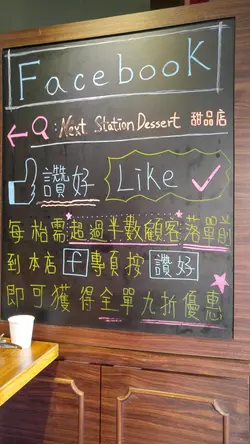 Facebook
: Next Station Dessert 甜品店
讚好 Like
每枱需超過半數顧客落單前
到本店 f 專頁按 讚好
即可獲得全單九折優惠